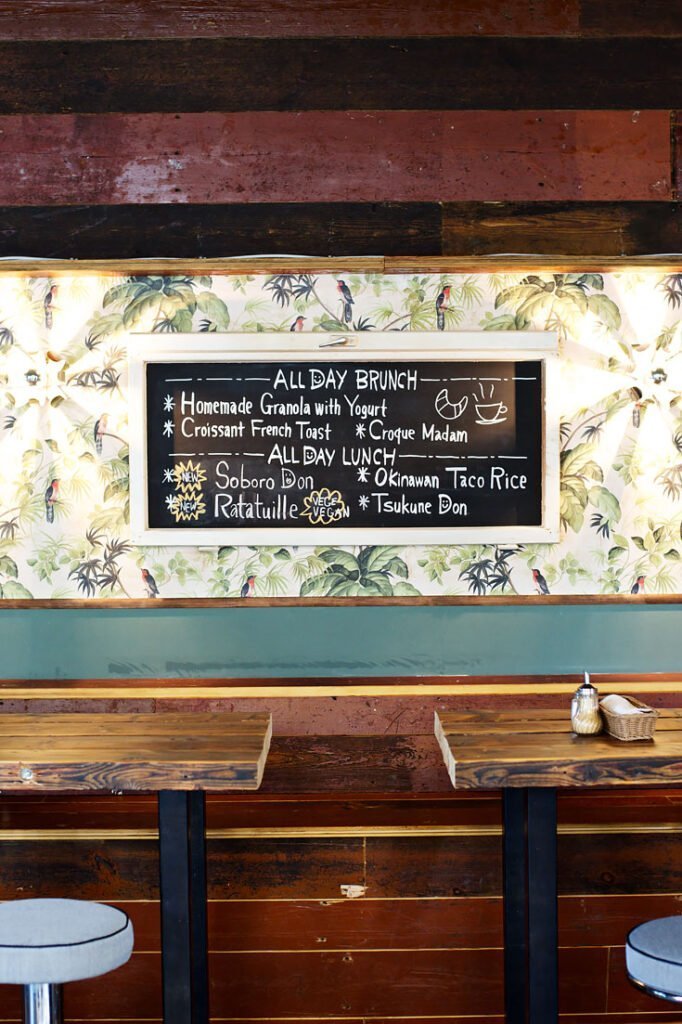 ALL DAY BRUNCH
* Homemade Granola with Yogurt
* Croissant French Toast * Croque Madam
ALL DAY LUNCH
* NEW Soboro Don * Okinawan Taco Rice
* NEW Ratatuille VEGE VEGAN * Tsukune Don